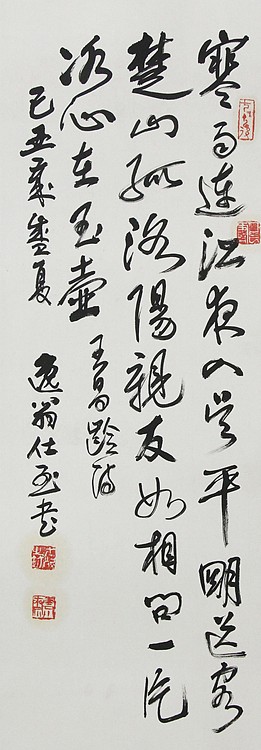 寒雨連江夜入吴平明送客
楚山孤洛陽親友如相問一片
冰心在玉壺
王昌齡诗
己丑年盛夏
逸翁仕
书